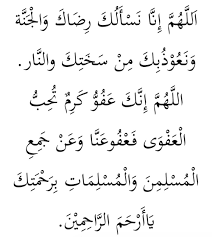 اَللَّهُمَّ إِنَّا نَسْأَلُكَ رِضَاكَ وَالْجَنَّةَ
وَنَعُوْذُبِكَ مِنْ سَخَتِكَ والنَّار.
اللَّهُمَّ إِنَّكَ عَفُوٌّ كَرِمٌ تُحِبُّ
الْعَفْوَى فَعْفُوعَنَّا وَعَنْ جَمِعِ
الْمُسْلِمِنَ وَالْمُسْلِمَاتِ بِرَحْمَتِكَ
يَاأَرْحَمَ الرَّاحِمِيْنَ.